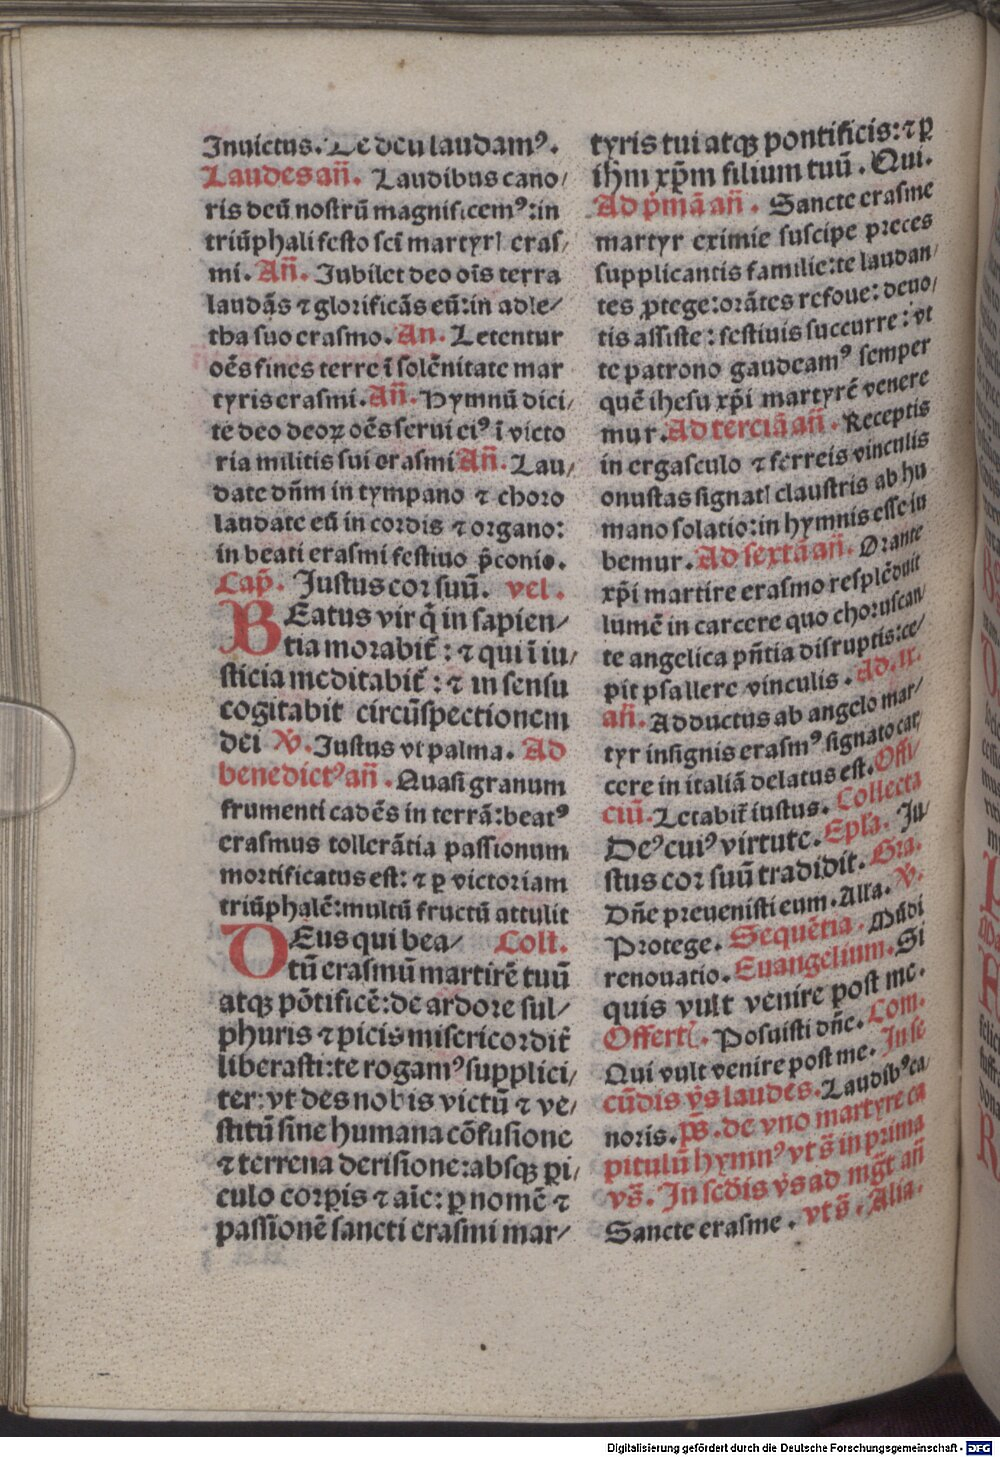 Inuictus. Te deu laudamꝰ.
Laudes añ. Laudibus cano/
ris deū nostrū magnificemꝰ: in
triūphali festo scī martyrꝭ eras/
mi. Añ. Jubilet deo oīs terra
laudās ⁊ glorificās eū: in adle/
tha suo erasmo. An. Letentur
oēs fines terre ī solēnitate mar
tyris erasmi. Añ. Hymnū dici/
te deo deoꝝ oēs serui eiꝰ ī victo
ria militis sui erasmi Añ. Lau/
date dñm in tympano ⁊ choro
laudate eū in cordis ⁊ organo:
in beati erasmi festiuo p̄conio.
Cap̄. Justus cor suū. vel.
BEatus vir q̄ in sapien/
tia morabit̄: ⁊ qui ī iu/
sticia meditabit̄: ⁊ in sensu
cogitabit circūspectionem
dei ℣. Justus vt palma. Ad
benedictꝰ añ. Quasi granum
frumenti cadēs in terrā: beatꝰ
erasmus tollerātia passionum
mortificatus est: ⁊ ꝑ victoriam
triūphalē: multū fructū attulit
DEus qui bea/ Coll.
tū erasmū martirē tuū
atqꝫ pōtificē: de ardore sul/
phuris ⁊ picis misericordit̄
liberasti: te rogamꝰ supplici/
ter: vt des nobis victū ⁊ ve/
stitū sine humana cōfusione
⁊ terrena derisione: absqꝫ ꝑi/
culo corꝑis ⁊ aīe: ꝑ nomē ⁊
passionē sancti erasmi mar/
tyris tui atqꝫ pontificis: ⁊ ꝑ
ihm xp̄m filium tuū. Qui.
Ad p̄mā añ. Sancte erasme
martyr eximie suscipe preces
supplicantis familie: te laudan/
tes ꝓtege: orātes refoue: deuo/
tis assiste: festiuis succurre: vt
te patrono gaudeamꝰ semper
quē ihesu xp̄i martyrē venere
mur. Ad terciā añ. Receptis
in ergasculo ⁊ ferreis vinculis
onustas signatꝭ claustris ab hu
mano solatio: in hymnis esse iu
bemur. Ad sextā añ. Orante
xp̄i martire erasmo resplēduit
lumē in carcere quo choruscan/
te angelica pñtia disruptis: ce/
pit psallere vinculis. Ad. ix.
añ. Adductus ab angelo mar/
tyr insignis erasmꝰ signato car/
cere in italiā delatus est. Offi/
ciū. Letabit̄ iustus. Collecta
Deꝰ cuiꝰ virtute. Epl̄a. Ju/
stus cor suū tradidit. Gra.
Dñe preuenisti eum. Alla. ℣.
Protege. Sequētia. Mūdi
renouatio. Euangelium. Si
quis vult venire post me.
Offertꝭ. Posuisti dñe. Com.
Qui vult venire post me. In se
cūdis v̄s laudes. Laudibꝰ ca/
noris. p̄s. de vno martyre ca
pitulū hymnꝰ vt s̄ in prima
vs̄. In scd̄is v̄s ad mḡt añ
Sancte erasme. vt s̄. Alia.
Digitalisierung gefördert durch die Deutsche Forschungsgemeinschaft - DFG